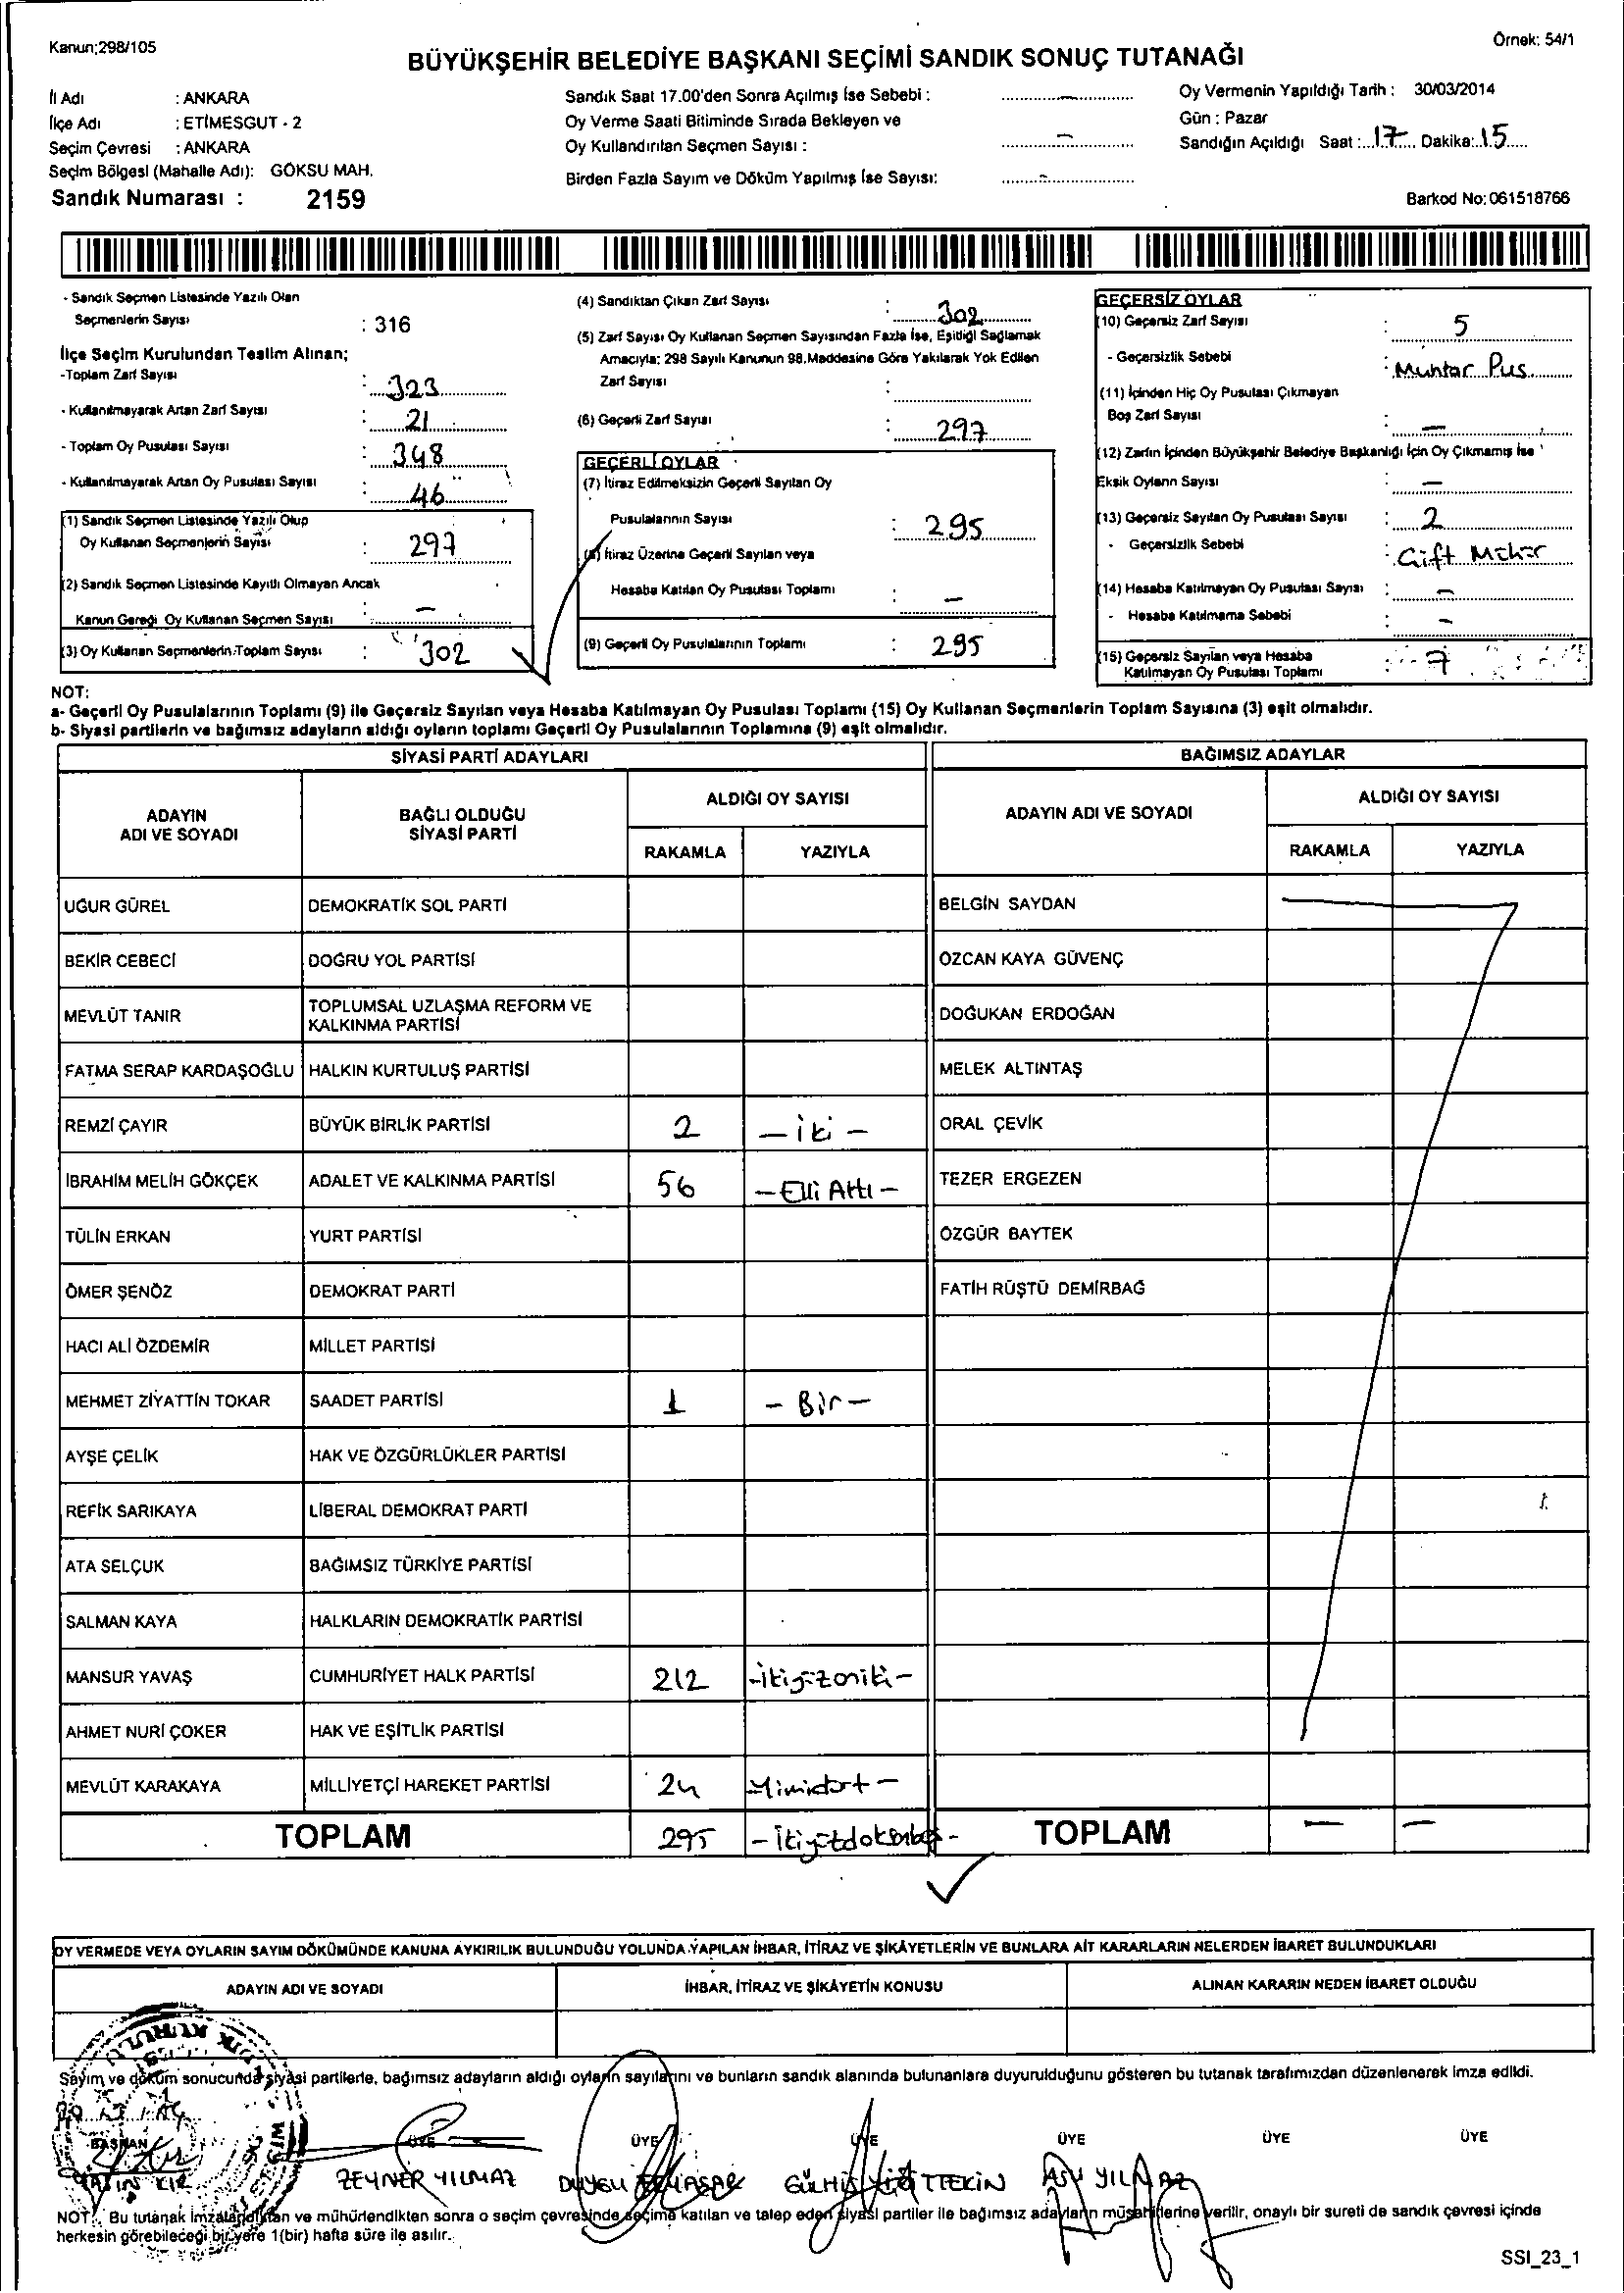 Kanun;298/105
Örnek: 54/1
BÜYÜKŞEHİR BELEDİYE BAŞKANI SEÇİMİ SANDIK SONUÇ TUTANAĞI
İl Adı : ANKARA
İlçe Adı : ETİMESGUT - 2
Seçim Çevresi : ANKARA
Seçim Bölgesi (Mahalle Adı): GÖKSU MAH.
Sandık Numarası : 2159
Sandık Saat 17.00'den Sonra Açılmış İse Sebebi : —
Oy Verme Saati Bitiminde Sırada Bekleyen ve
Oy Kullandırılan Seçmen Sayısı : —
Birden Fazla Sayım ve Döküm Yapılmış İse Sayısı: -
Oy Vermenin Yapıldığı Tarih : 30/03/2014
Gün : Pazar
Sandığın Açıldığı Saat : 17 Dakika: 15
Barkod No: 061518766
- Sandık Seçmen Listesinde Yazılı Olan
Seçmenlerin Sayısı : 316
İlçe Seçim Kurulundan Teslim Alınan;
-Toplam Zarf Sayısı : 323
- Kullanılmayarak Artan Zarf Sayısı : 21
- Toplam Oy Pusulası Sayısı : 348
- Kullanılmayarak Artan Oy Pusulası Sayısı : 46
(1) Sandık Seçmen Listesinde Yazılı Olup
Oy Kullanan Seçmenlerin Sayısı : 297
(2) Sandık Seçmen Listesinde Kayıtlı Olmayan Ancak
Kanun Gereği Oy Kullanan Seçmen Sayısı : —
(3) Oy Kullanan Seçmenlerin Toplam Sayısı : 302
(4) Sandıktan Çıkan Zarf Sayısı : 302
(5) Zarf Sayısı Oy Kullanan Seçmen Sayısından Fazla İse, Eşitliği Sağlamak
Amacıyla; 298 Sayılı Kanunun 98.Maddesine Göre Yakılarak Yok Edilen
Zarf Sayısı :
(6) Geçerli Zarf Sayısı : 297
GEÇERLİ OYLAR
(7) İtiraz Edilmeksizin Geçerli Sayılan Oy
Pusulalarının Sayısı : 295
(8) İtiraz Üzerine Geçerli Sayılan veya
Hesaba Katılan Oy Pusulası Toplamı : —
(9) Geçerli Oy Pusulalarının Toplamı : 295
GEÇERSİZ OYLAR
(10) Geçersiz Zarf Sayısı : 5
- Geçersizlik Sebebi : Muhtar Pus.
(11) İçinden Hiç Oy Pusulası Çıkmayan
Boş Zarf Sayısı : —
(12) Zarfın İçinden Büyükşehir Belediye Başkanlığı İçin Oy Çıkmamış İse
Eksik Oyların Sayısı : —
(13) Geçersiz Sayılan Oy Pusulası Sayısı : 2
- Geçersizlik Sebebi : Çift Mühür
(14) Hesaba Katılmayan Oy Pusulası Sayısı : —
- Hesaba Katılmama Sebebi : —
(15) Geçersiz Sayılan veya Hesaba
Katılmayan Oy Pusulası Toplamı : 7
NOT:
a- Geçerli Oy Pusulalarının Toplamı (9) ile Geçersiz Sayılan veya Hesaba Katılmayan Oy Pusulası Toplamı (15) Oy Kullanan Seçmenlerin Toplam Sayısına (3) eşit olmalıdır.
b- Siyasi partilerin ve bağımsız adayların aldığı oyların toplamı Geçerli Oy Pusulalarının Toplamına (9) eşit olmalıdır.
SİYASİ PARTİ ADAYLARI
ADAYIN ADI VE SOYADI
BAĞLI OLDUĞU SİYASİ PARTİ
ALDIĞI OY SAYISI
RAKAMLA YAZIYLA
UĞUR GÜREL DEMOKRATİK SOL PARTİ
BEKİR CEBECİ DOĞRU YOL PARTİSİ
MEVLÜT TANIR TOPLUMSAL UZLAŞMA REFORM VE KALKINMA PARTİSİ
FATMA SERAP KARDAŞOĞLU HALKIN KURTULUŞ PARTİSİ
REMZİ ÇAYIR BÜYÜK BİRLİK PARTİSİ 2 — iki —
İBRAHİM MELİH GÖKÇEK ADALET VE KALKINMA PARTİSİ 56 — Elli Altı —
TÜLİN ERKAN YURT PARTİSİ
ÖMER ŞENÖZ DEMOKRAT PARTİ
HACI ALİ ÖZDEMİR MİLLET PARTİSİ
MEHMET ZİYATTİN TOKAR SAADET PARTİSİ 1 — Bir —
AYŞE ÇELİK HAK VE ÖZGÜRLÜKLER PARTİSİ
REFİK SARIKAYA LİBERAL DEMOKRAT PARTİ
ATA SELÇUK BAĞIMSIZ TÜRKİYE PARTİSİ
SALMAN KAYA HALKLARIN DEMOKRATİK PARTİSİ
MANSUR YAVAŞ CUMHURİYET HALK PARTİSİ 212 -ikiyüzoniki-
AHMET NURİ ÇOKER HAK VE EŞİTLİK PARTİSİ
MEVLÜT KARAKAYA MİLLİYETÇİ HAREKET PARTİSİ 24 -Yirmidört-
TOPLAM 295 - ikiyüzdoksanbeş -
BAĞIMSIZ ADAYLAR
ADAYIN ADI VE SOYADI
ALDIĞI OY SAYISI
RAKAMLA YAZIYLA
BELGİN SAYDAN
ÖZCAN KAYA GÜVENÇ
DOĞUKAN ERDOĞAN
MELEK ALTINTAŞ
ORAL ÇEVİK
TEZER ERGEZEN
ÖZGÜR BAYTEK
FATİH RÜŞTÜ DEMİRBAĞ
TOPLAM — —
OY VERMEDE VEYA OYLARIN SAYIM DÖKÜMÜNDE KANUNA AYKIRILIK BULUNDUĞU YOLUNDA YAPILAN İHBAR, İTİRAZ VE ŞİKÂYETLERİN VE BUNLARA AİT KARARLARIN NELERDEN İBARET BULUNDUKLARI
ADAYIN ADI VE SOYADI
İHBAR, İTİRAZ VE ŞİKÂYETİN KONUSU
ALINAN KARARIN NEDEN İBARET OLDUĞU
Sayım ve döküm sonucunda siyasi partilerle, bağımsız adayların aldığı oyların sayılarını ve bunların sandık alanında bulunanlara duyurulduğunu gösteren bu tutanak tarafımızdan düzenlenerek imza edildi.
BAŞKAN ÜYE ÜYE ÜYE ÜYE ÜYE ÜYE
ZEYNEP YILMAZ DUYGU GÜLHİS YİĞİTTEKİN ASU YILMAZ
NOT: Bu tutanak imzalandıktan ve mühürlendikten sonra o seçim çevresinde seçime katılan ve talep eden siyasi partiler ile bağımsız adayların müşahitlerine verilir, onaylı bir sureti de sandık çevresi içinde
herkesin görebileceği bir yere 1(bir) hafta süre ile asılır.
SSI_23_1